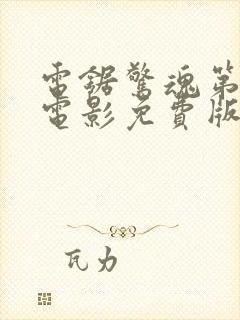 電鋸驚魂第
電影免費版
瓦力